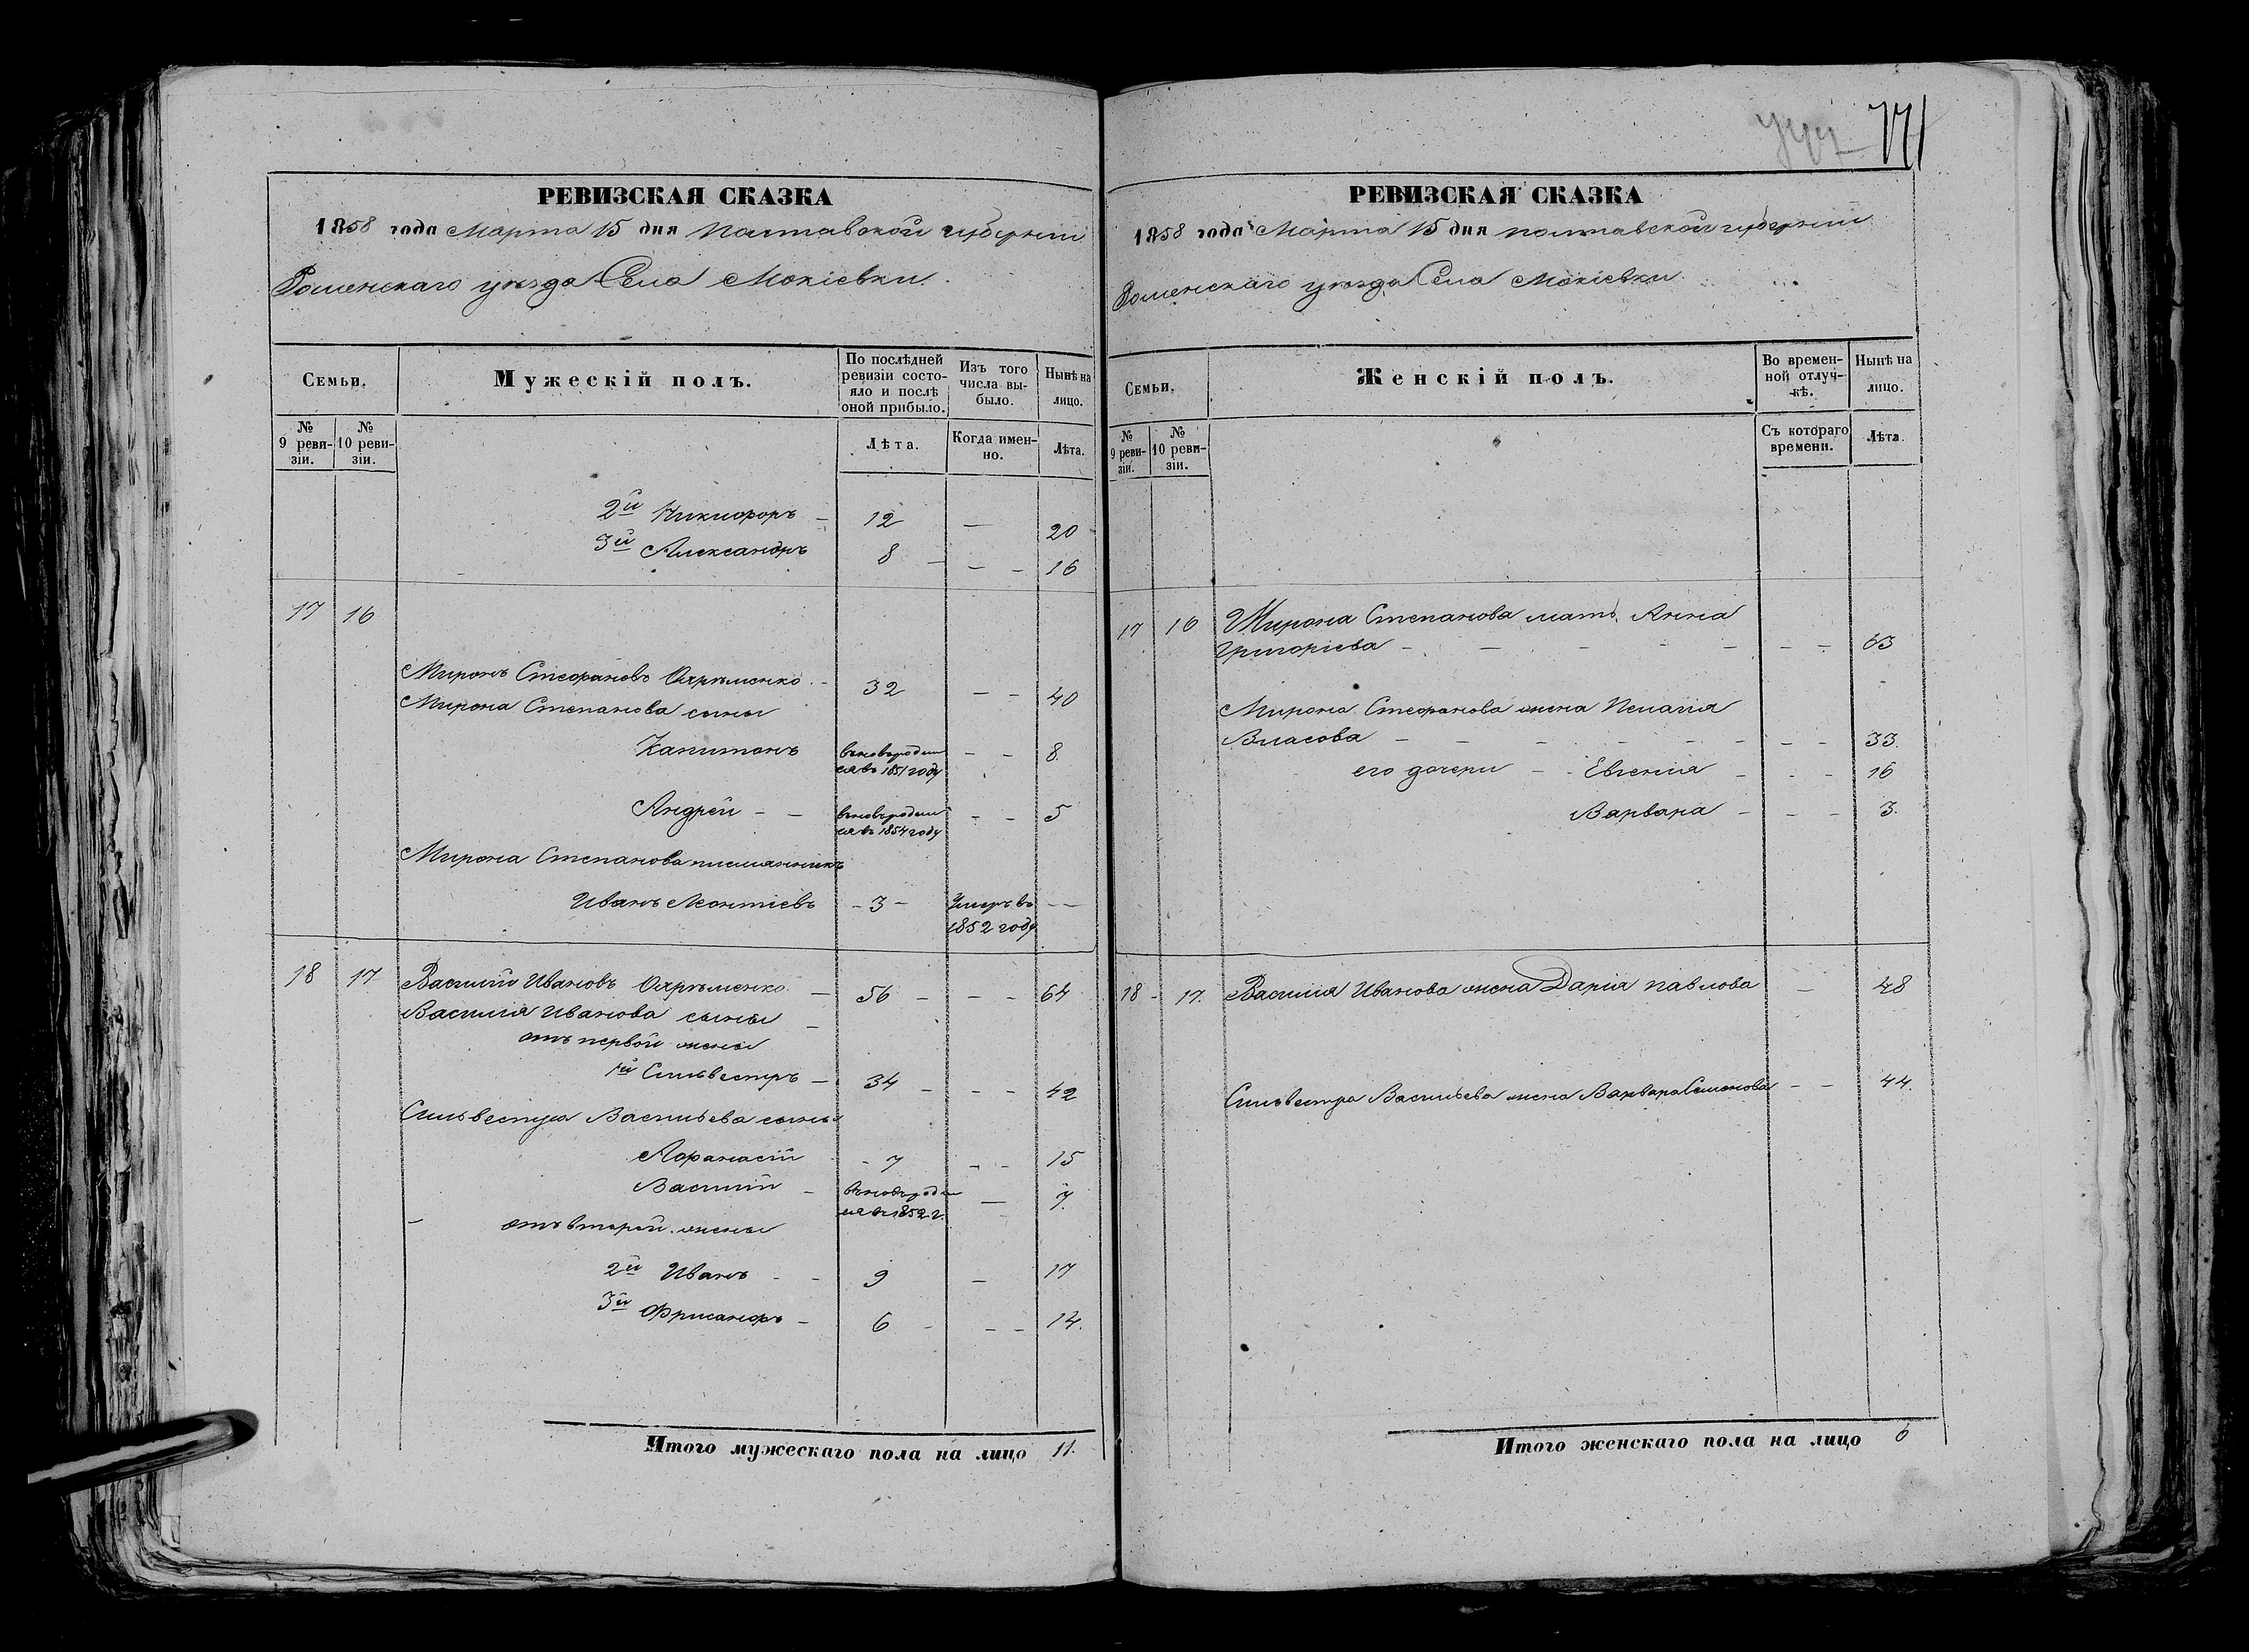 РЕВИЗСКАЯ СКАЗКА
1858 года Марта 15 дня Полтавской губерніи
Роменскаго уѣзда Села Мокіевки.
Семьи.
Мужескій полъ.
По послѣдней ревизіи состояло и послѣ оной прибыло.
Изъ того числа выбыло.
Нынѣ на лицо.
№ 9 ревизіи.
№ 10 ревизіи.
Лѣта.
Когда именно.
Лѣта.
2й Никифоръ – 12 — 20
3й Александръ 8 – – – 16
17 16
Миронъ Стефановъ – 32 – – 40
Мирона Степанова сыны
Капитонъ вновьродил – – 8.
ся въ 1851 году
Андрей – – вновьродил – – 5
ся въ 1854 году
Мирона Степанова племянникъ
Иванъ Леонтіевъ – 3 – Умеръ въ – –
1852 году
18 17 Василій Ивановъ – 56 – – – 64
Василія Иванова сыны –
отъ первой жены
1й Сильвестръ – 34 – – – 42
Сильвестра Васильева сыны
Афанасій – 7 – – 15
Василій – вновьродил — 7.
ся въ 1852 г.
– отъ второй жены
2й Иванъ – – 9 – 17
3й – 6 – – – 14.
Итого мужескаго пола на лицо 11.
771
РЕВИЗСКАЯ СКАЗКА
1858 года Марта 15 дня полтавской губерніи
Роменскаго уѣзда Села Мокіевки.
Семьи.
Женскій полъ.
Во временной отлучкѣ.
Нынѣ на лицо.
№ 9 ревизіи.
№ 10 ревизіи.
Съ котораго времени.
Лѣта.
17 16 Мирона Степанова мать Анна
Григоріева – – – – – – – 63
Мирона Стефанова жена Пелагія
Власова – – – – – – – – 33.
его дочери – – Евгенія – – – 16
Варвара – – – 3.
18 – 17. Василія Иванова жена Дарія Павлова – 48
Сильвестра Васильева жена Варвара Семенова – – 44.
Итого женскаго пола на лицо 6